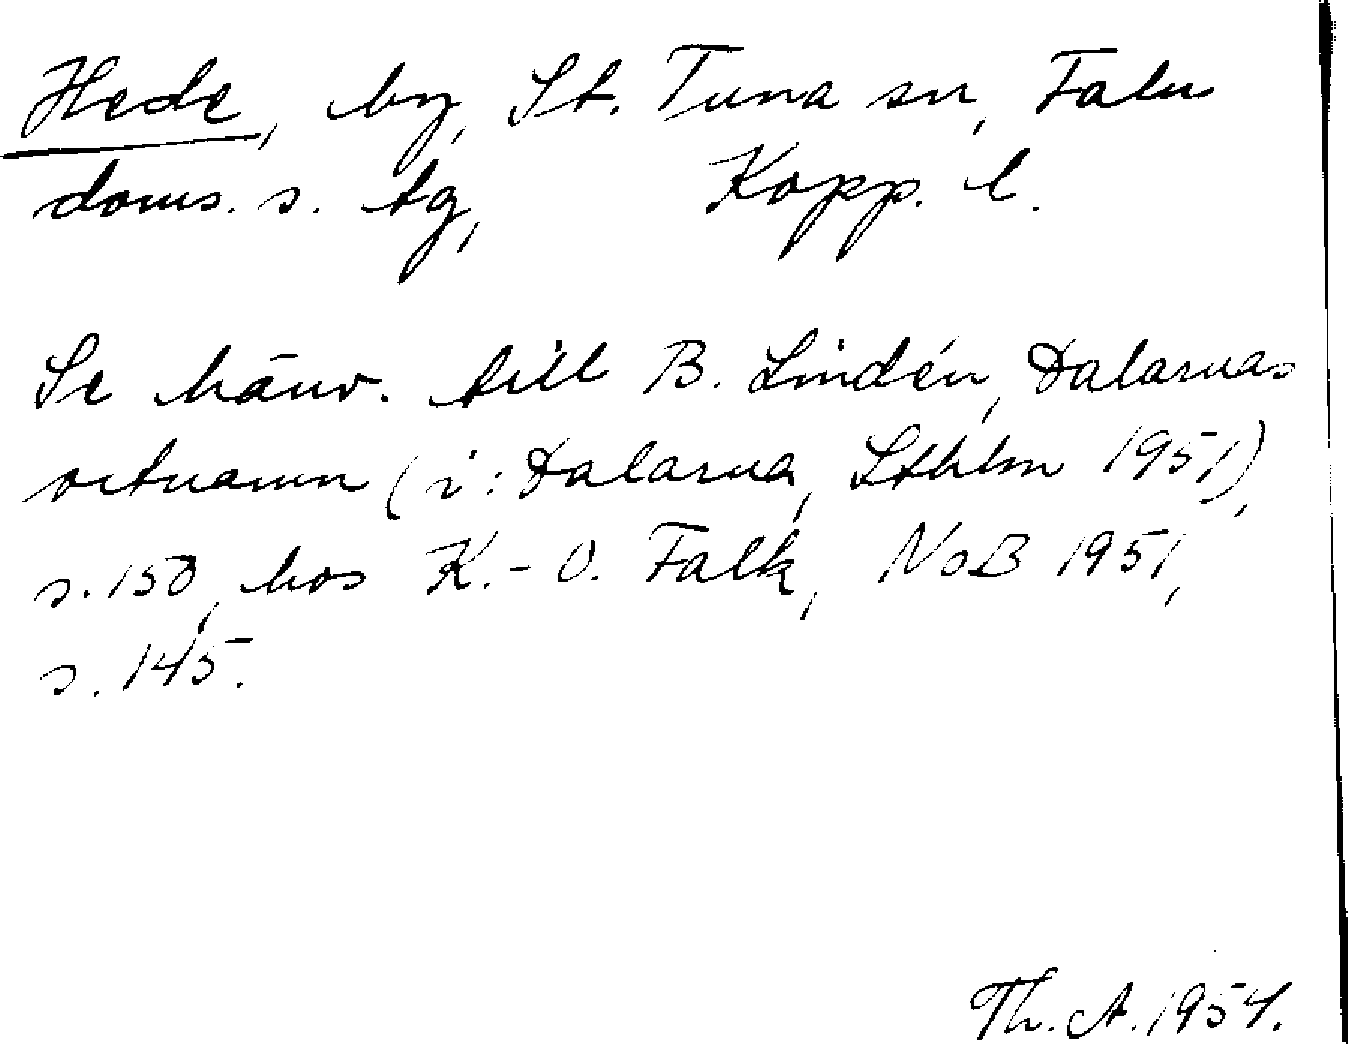 Hede, by, St. Tuna sn, Falu
doms. s. tg, Kopp. l.
Se hänv. till B. Lindén, Dalarnas
ortnamn (i: Dalarna, Sthlm 1951),
s. 150, hos K.-O. Falk, NoB 1951,
s. 145.
Th. A. 1954.